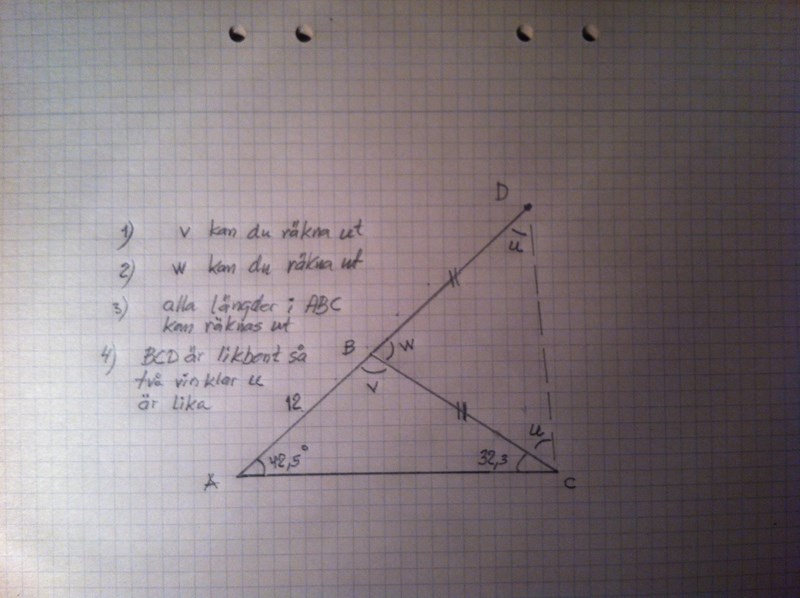 D
u
1) v kan du räkna ut
2) w kan du räkna ut
3) alla längder i ABC
kan räknas ut
4) BCD är likbent så
två vinklar u
är lika
B
w
v
12
u
A
42,5°
32,3
C